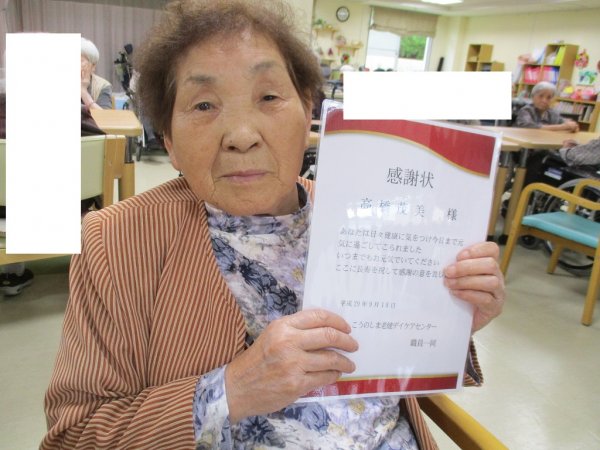 感謝状
高橋成美 様
あなたは日々健康に気をつけ今日まで元
気に過ごしてこられました
いつまでもお元気でいてください
ここに長寿を祝して感謝の意を表
平成29年9月18日
こうのしま老健デイケアセンター
職員一同